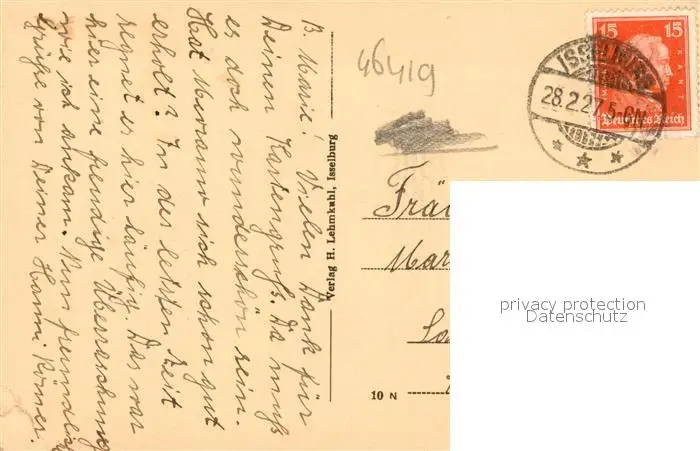 B. Marie! Vielen Dank für
Deinen Kartengruß. Da muß
es doch wunderschön sein.
Hat sich schon gut
erholt? In der letzten Zeit
regnet es hier häufig. Das war
hier eine freudige Überraschung
wie ich ankam. Nun freundl.
Grüße von Deiner Hanni Römer.
Verlag H. Lehmkuhl, Isselburg
46419
15 15
KANT
Deutsches Reich
ISSELBURG
28.2.27. 5-6N.
Frä
Mar
10 N
privacy protection
Datenschutz